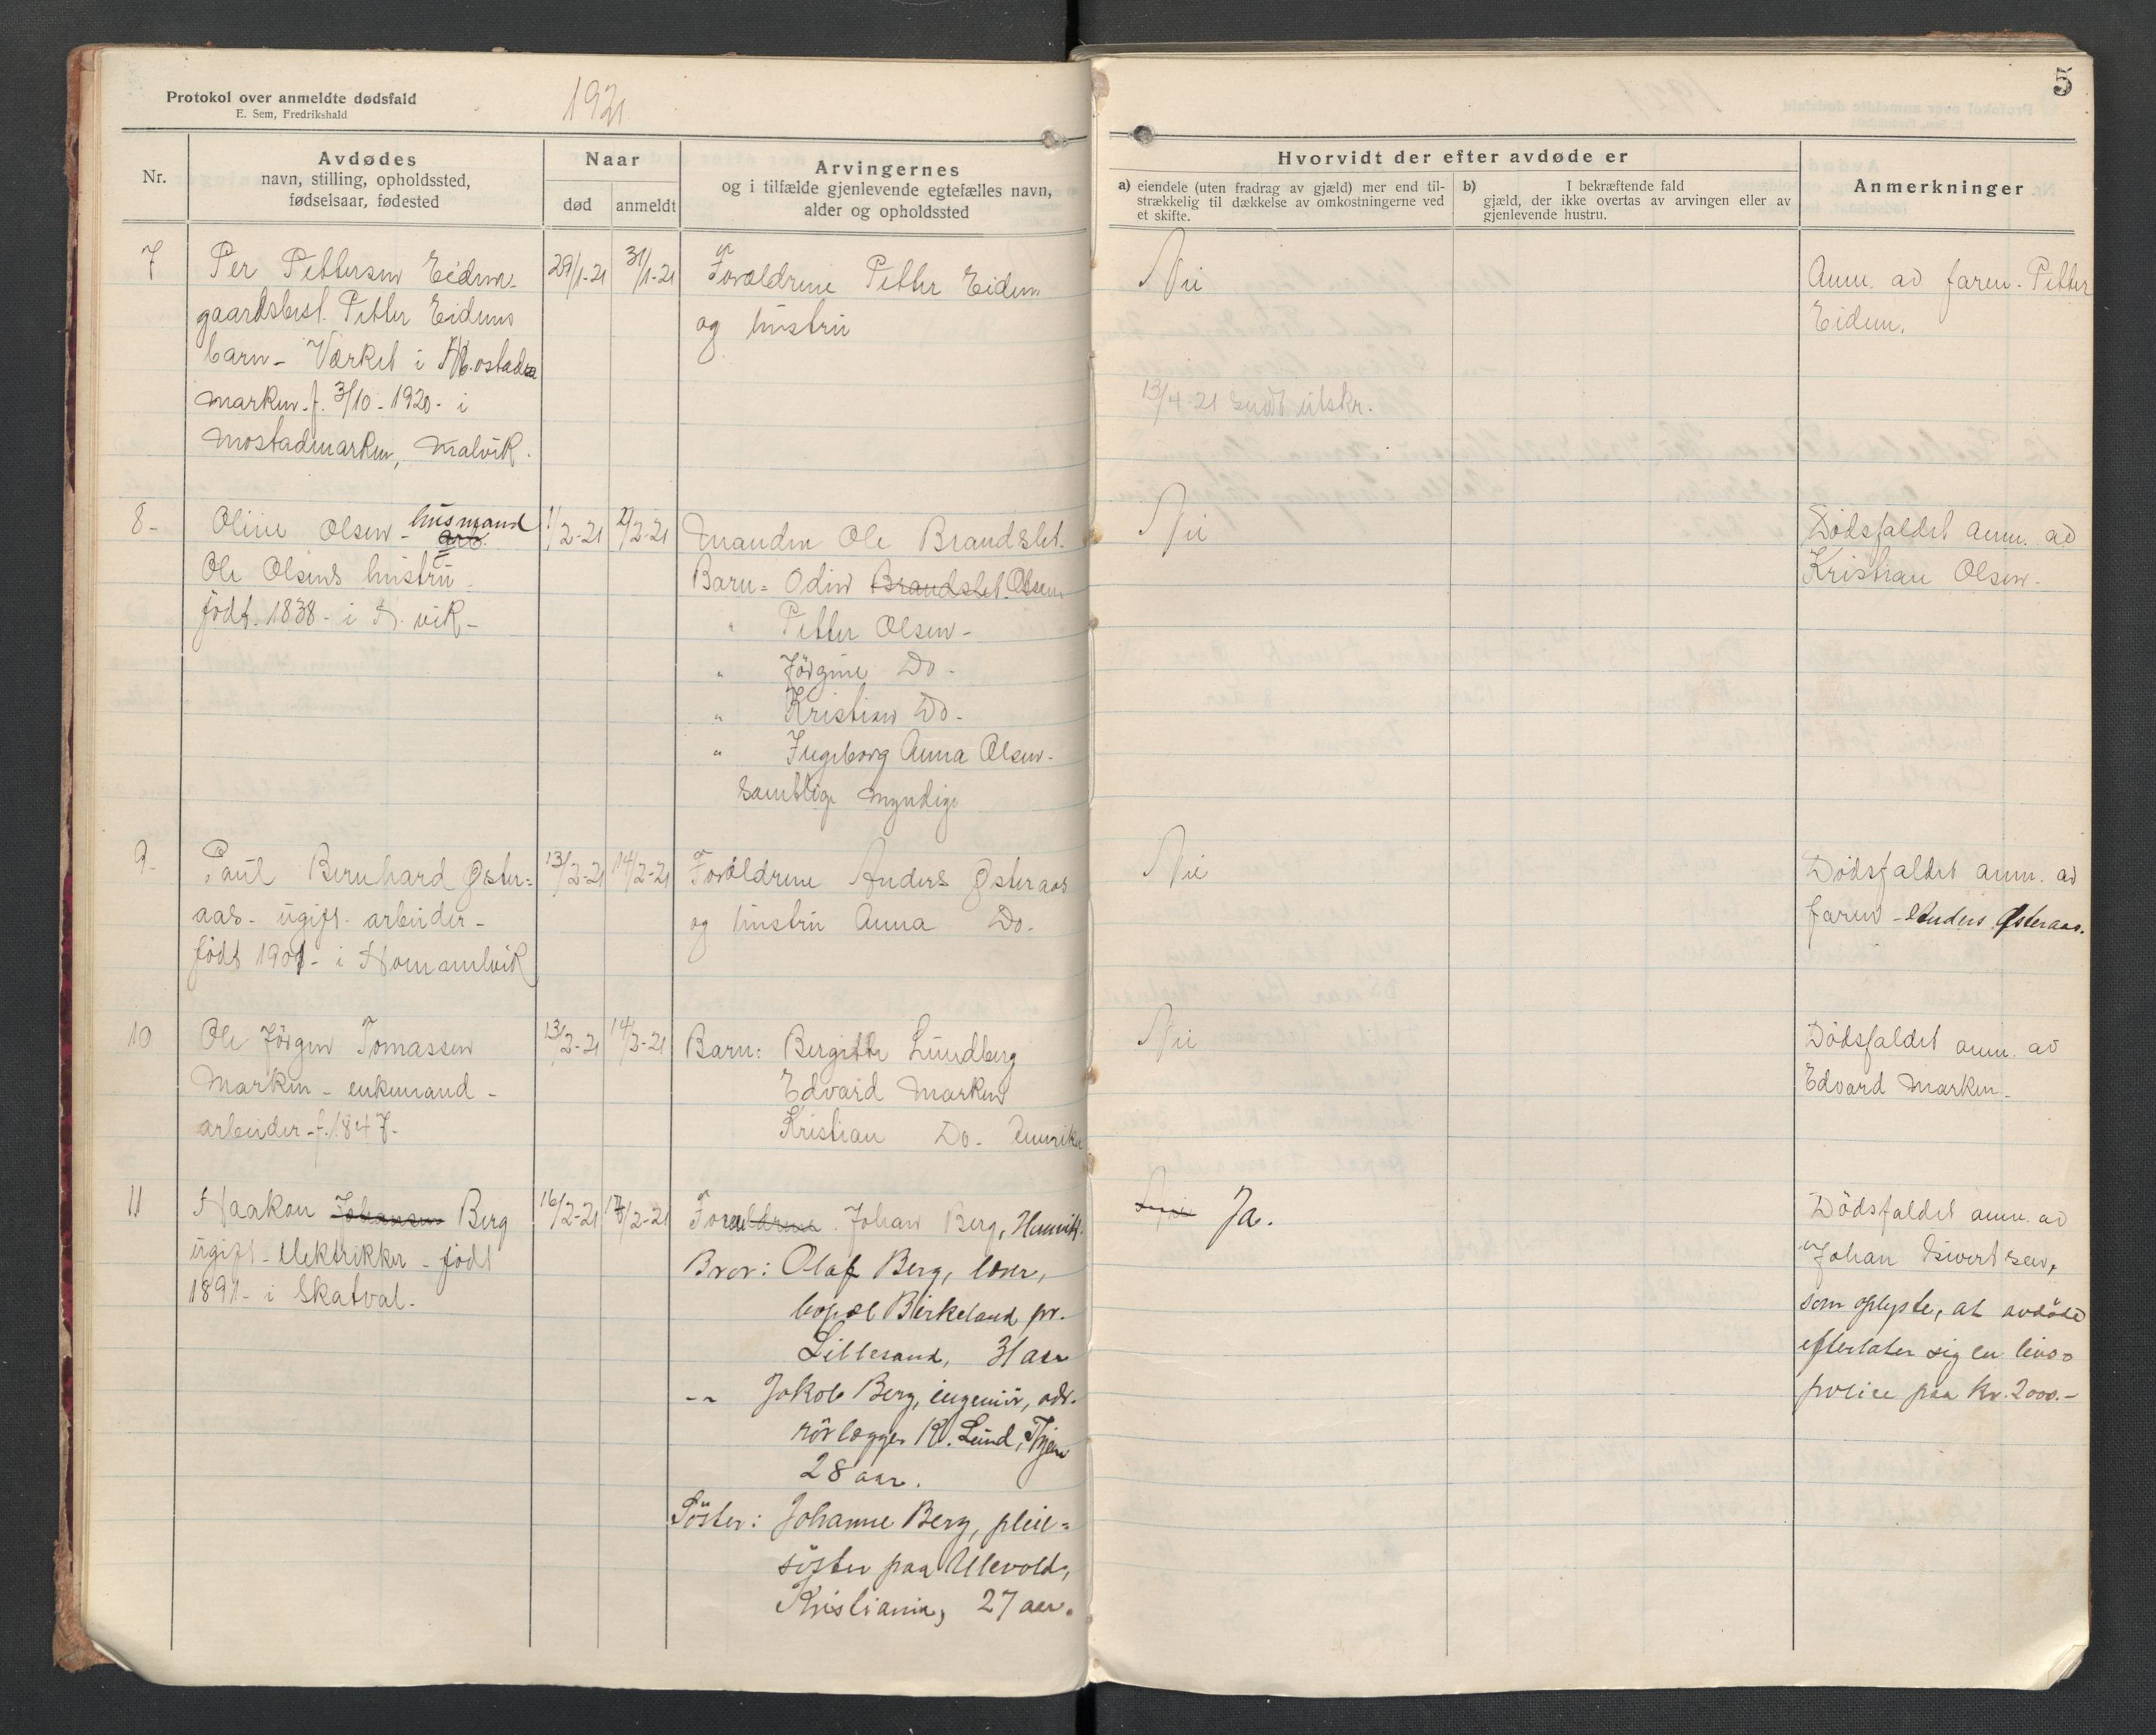 Protokol over anmeldte dødsfald
E. Sem, Fredrikshald
1921.
Nr.
Avdødes
navn, stilling, opholdssted,
fødselsaar, fødested
Naar
død
anmeldt
Arvingernes
og i tilfælde gjenlevende egtefælles navn,
alder og opholdssted
7
Per Pettersen Eidem-
gaardsbest. Petter Eidems
barn - Værket i Mostad
marken. f. 3/10 - 1920 - i
Mostadmarken, Malvik.
29/1-21
31/1-21
Forældrene Petter Eidem
og hustru
8-
Oline Olsen - husmand
arb.
Ole Olsens hustru.
født. 1838 - i H.vik -
1/2-21
2/2-21
Manden Ole Brandslet.
Barn = Odin Brandslet. Olsen
" Petter Olsen -
" Jörgine Do -
" Kristian Do -
" Ingeborg Anna Olsen -
samtlige myndige
9-
Paul Bernhard Øster=
aas - ugift. arbeider -
født 1901 - i Hommelvik
13/2-21
14/2-21
Forældrene Anders Østeraas
og hustru Anna Do.
10
Ole Jörgen Tomassen
Marken - enkemand -
arbeider - f. 1847 -
13/2-21
14/2-21
Barn: Bergitte Lundberg
Edvard Marken
Kristian Do - Amerika
11
Haakon Johansen Berg
ugift - elektrikker - født
1891 - i Skatval -
16/2-21
17/2-21
Forældrene. Johan Berg, Hmvik.
Bror: Olaf Berg, lærer,
bopæl Birkeland pr.
Lillesand, 31 aar
-"- Jakob Berg, ingeniör, adr.
rörlægger K. Lund, Thjem
28 aar.
Söster: Johanne Berg, pleie=
söster paa Ullevold,
Kristiania, 27 aar.
5
Hvorvidt der efter avdøde er
a) eiendele (uten fradrag av gjæld) mer end til-
strækkelig til dækkelse av omkostningerne ved
et skifte.
b) I bekræftende fald
gjæld, der ikke overtas av arvingen eller av
gjenlevende hustru.
Anmerkninger
Nei
13/4 21 sendt utskr.
Anm. av faren. Petter
Eidem.
Nei
Dödsfaldet anm. av
Kristian Olsen -
Nei
Dödsfaldet anm. av
faren - Anders Østeraas.
Nei
Dödsfaldet anm. av
Edvard Marken -
Nei Ja.
Dödsfaldet anm. av
Johan Sivertsen,
som oplyste, at avdöde
efterlater sig en livs=
police paa kr. 2000.-